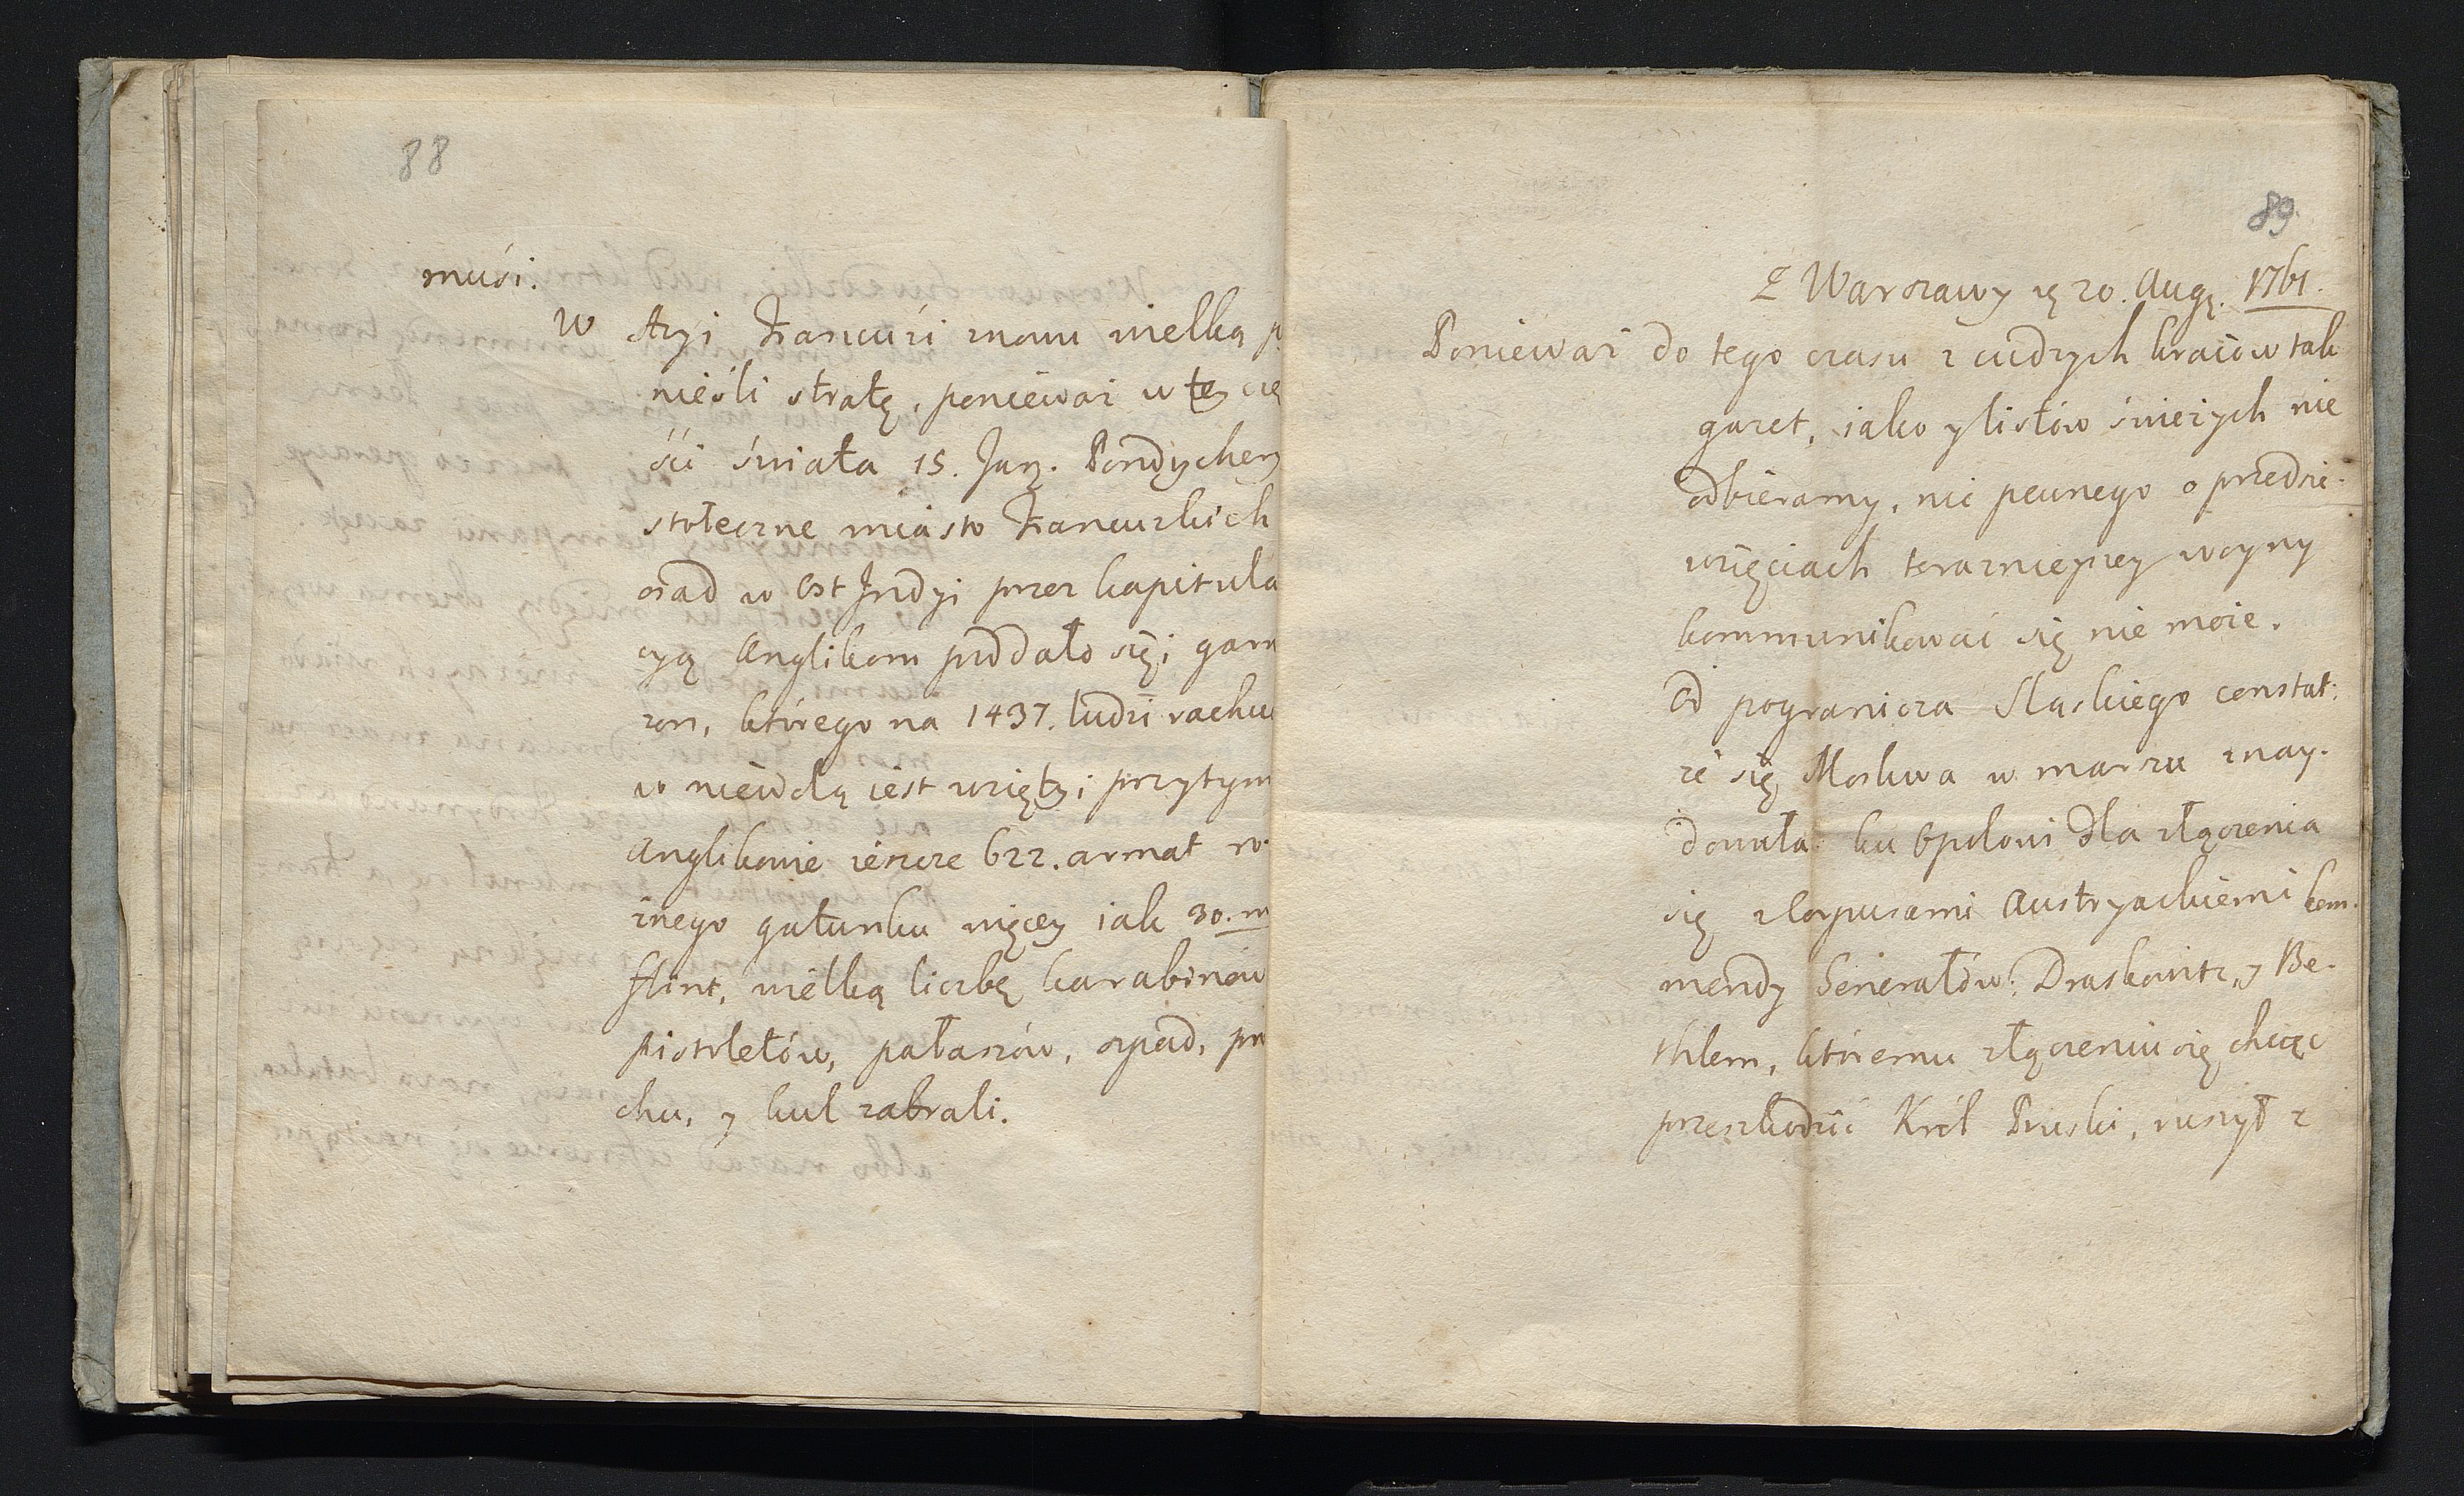 88
muśi.
W Azyi Francuzi znowu wielką p
nieśli stratę, ponieważ w tey czę
ści świata 15. Jany. Pondychery
stołeczne miasto Francuzkich
osad w Ost Jndyi przez kapitula
cyą Anglikom poddało się; garni
zon, którego na 1437. ludzi rachu
w niewolą iest wzięty; przytym
Anglikowie ieszcze 622. armat ro.
żnego gatunku więcey iak 30. m
flint, wielką liczbę karabinów
pistoletów, pałaszów, szpad, pro
chu, y kul zabrali.
89.
Z Warszawy 20. Aug. 1761.
Ponieważ do tego czasu z cudzych kraiów tak
gazet, iako y listów świeżych nie
odbieramy, nic pewnego o przedsie-
wzięciach teraznieyszey woyny
kommunikować się nie może.
Od pogranicza Sląskiego constat:
że się Moskwa w marszu znay-
dowała ku Opolowi dla złączenia
się z korpusami Austryackiemi kom-
mendy Generałów: Draskowitz, y Be-
thlem, któremu złączeniu się chcąc
przeszkodzić Król Pruski, ruszył z